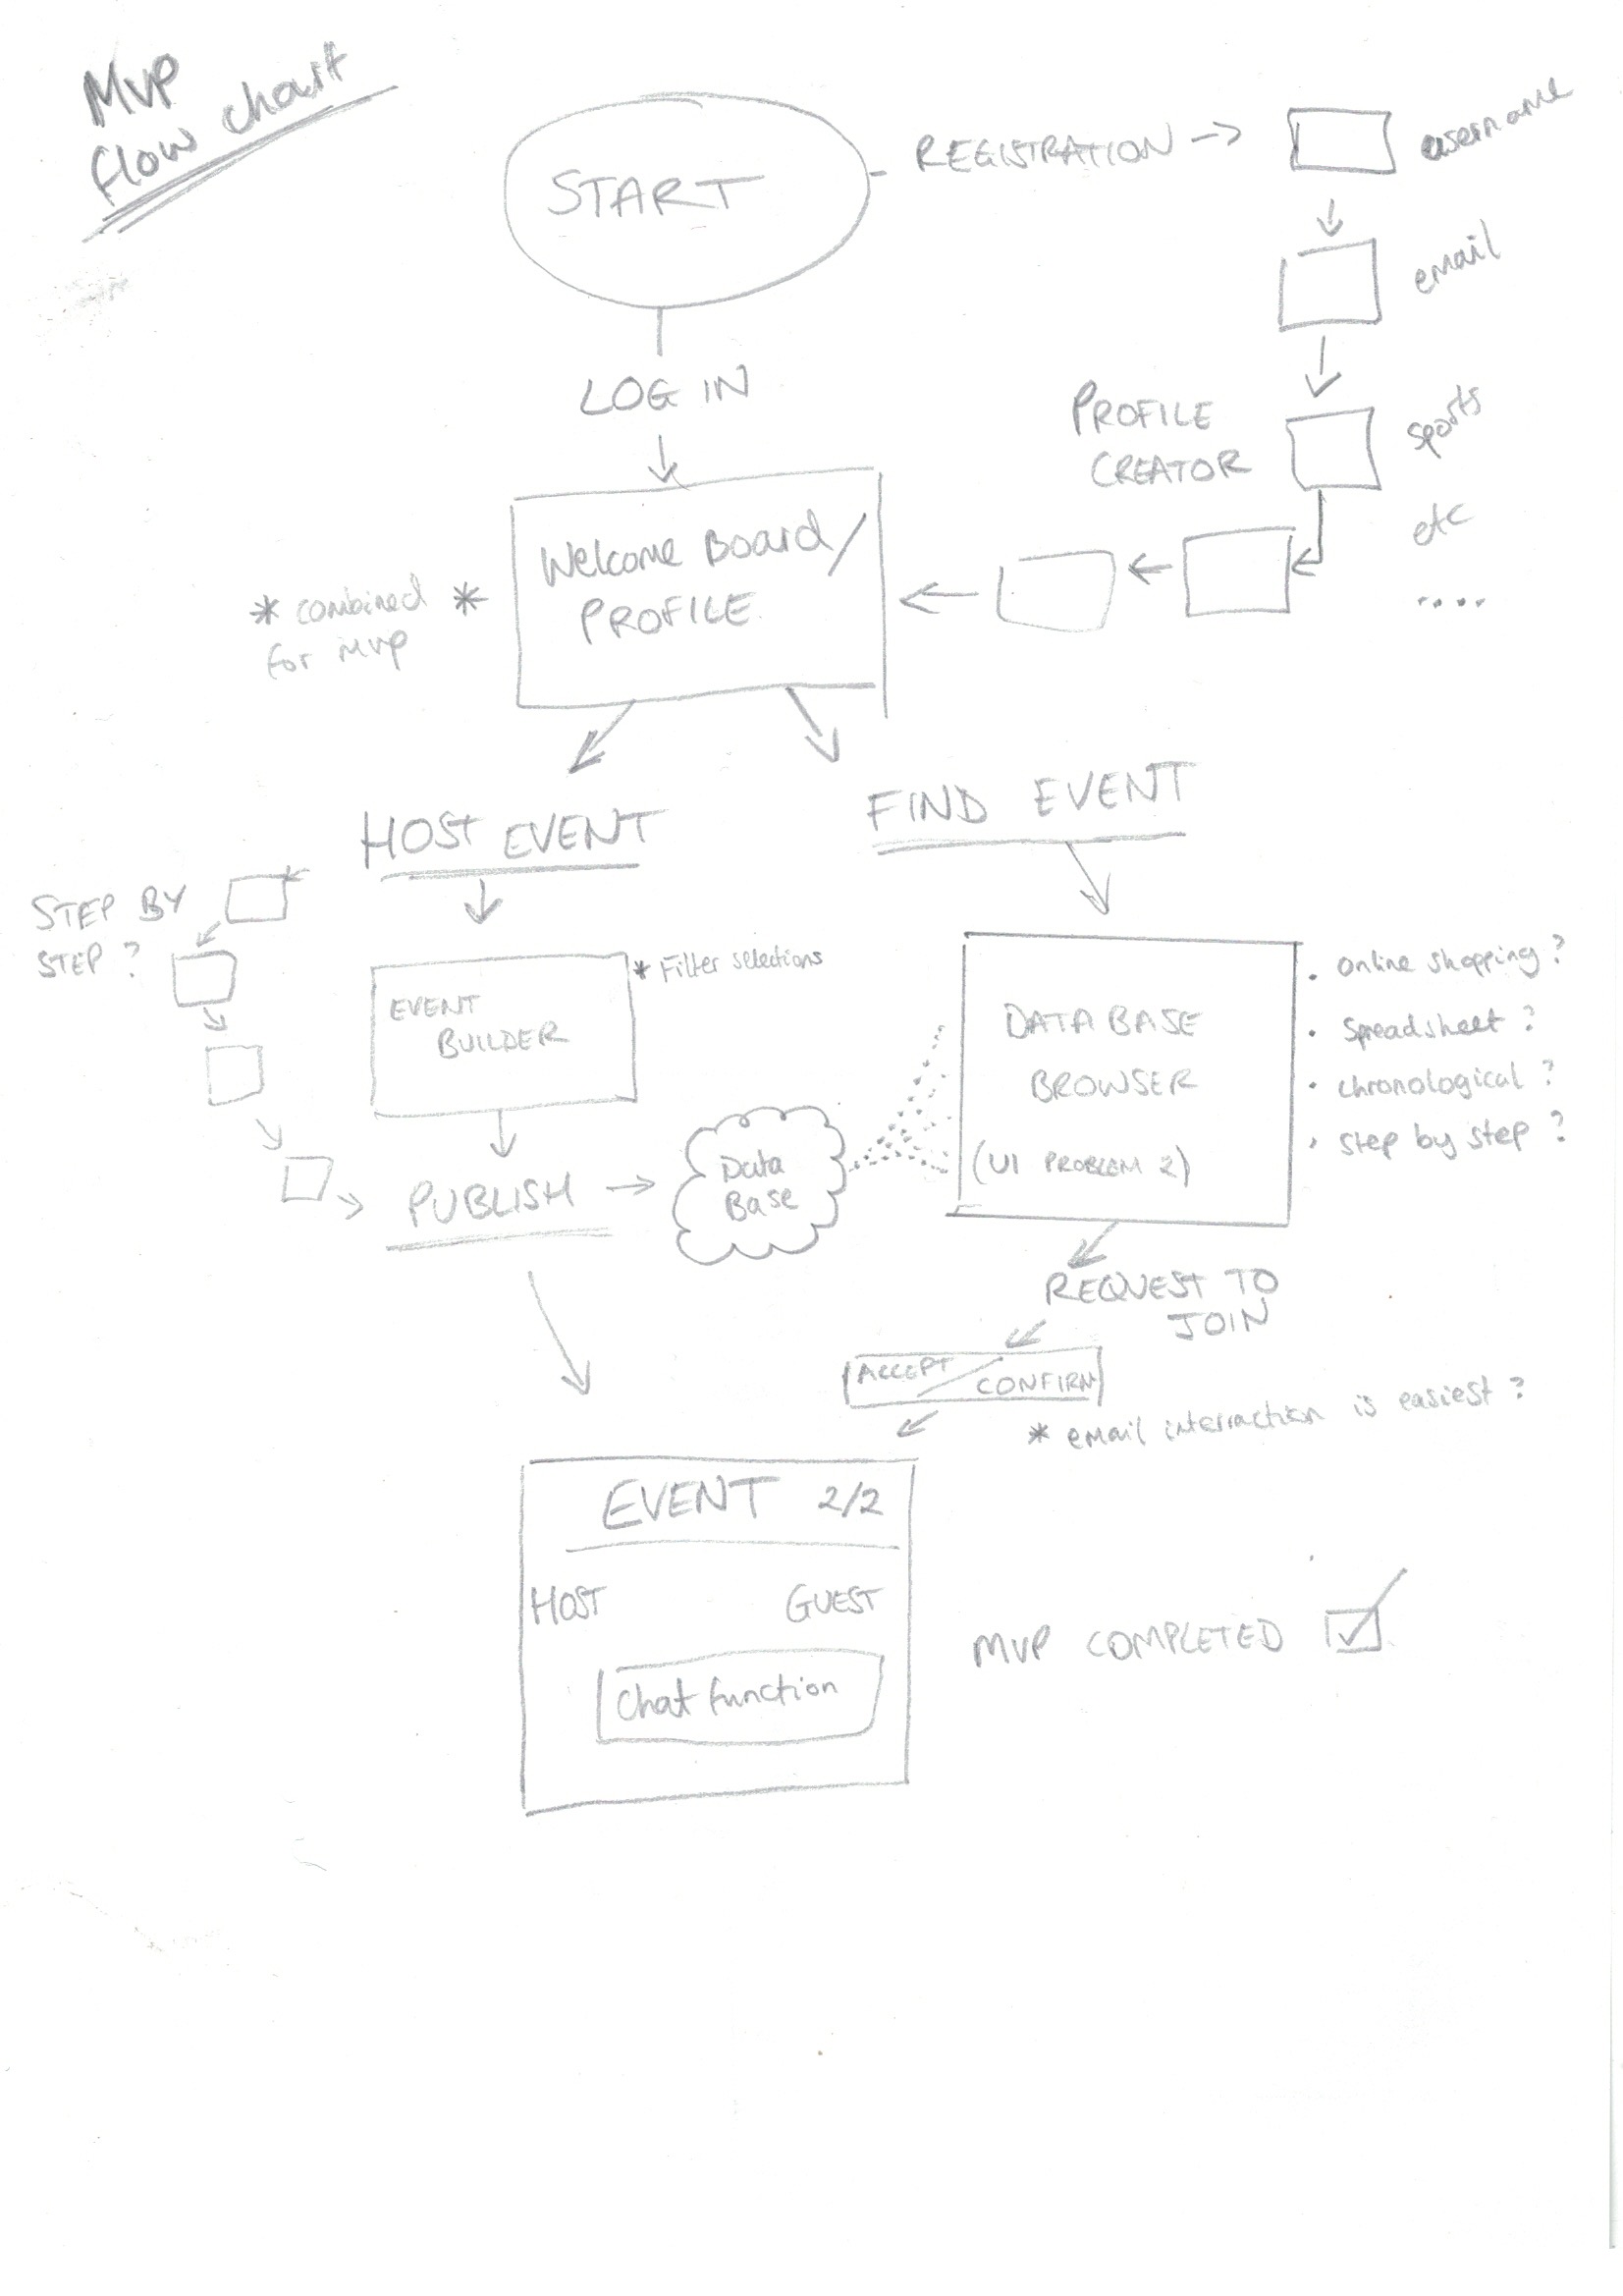 MVP
flow chart
START
REGISTRATION
username
email
sports
etc
....
PROFILE
CREATOR
LOG IN
Welcome Board/
PROFILE
* combined *
for MVP
HOST EVENT
FIND EVENT
STEP BY
STEP ?
EVENT
BUILDER
* Filter selections
PUBLISH
Data
Base
DATA BASE
BROWSER
(UI PROBLEM 2)
. online shopping ?
. Spreadsheet ?
. chronological ?
. step by step ?
REQUEST TO
JOIN
ACCEPT / CONFIRM
* email interraction is easiest ?
EVENT 2/2
HOST GUEST
Chat function
MVP COMPLETED